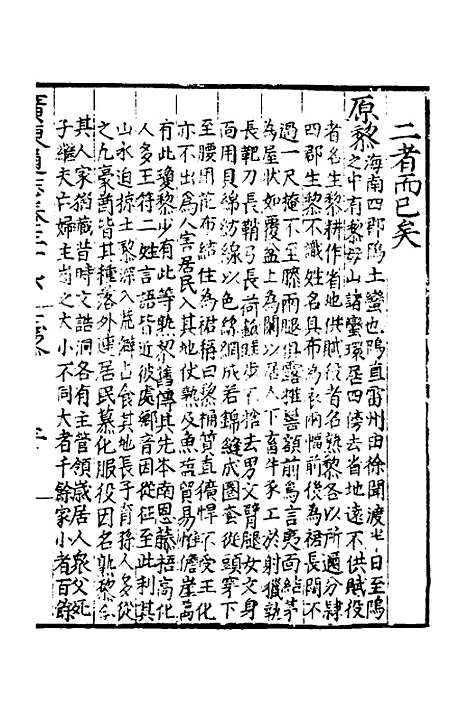 二者而已矣
原黎海南四郡隝土蠻也隝直雷州由徐聞渡半日至隝
之中有黎母山諸蠻環居四傍去省地遠不供賦役
者名生黎耕作省地供賦役者名熟黎各以所邇分隸
四郡生黎不識姓名具布長兩幅前後為裙長闊不
過一尺掩不至膝兩腿俱露椎髻額前鳥言夷面結茅
為屋狀如覆盆上為闌以居人下畜牛豕工於射獵執
長靶刀長鞘弓長荷槍跬步不捨去男文臂腿女文身
面用貝綿紡線以色絲綢成若錦縫成圈套從頭穿下
至腰用花布結住為裙稱曰黎桶質直獷悍不受王化
亦不出為人害居民入其地伏熟及魚蓏貿易惟儋崖萬
有此瓊黎少有此等熟黎舊傳其先本南恩藤梧高化
人多王符二姓言語皆近彼處鄉音因從征至此利其
山水迫掠土黎深入荒僻占食其地長子育孫人多從
之九豪酋皆其種落外連居民慕化服役因名熟黎今
其人家猶藏昔時文誥洞各有主管領歲居人衆父死
子繼夫亡婦主峝之大小不同大者千餘家小者百餘